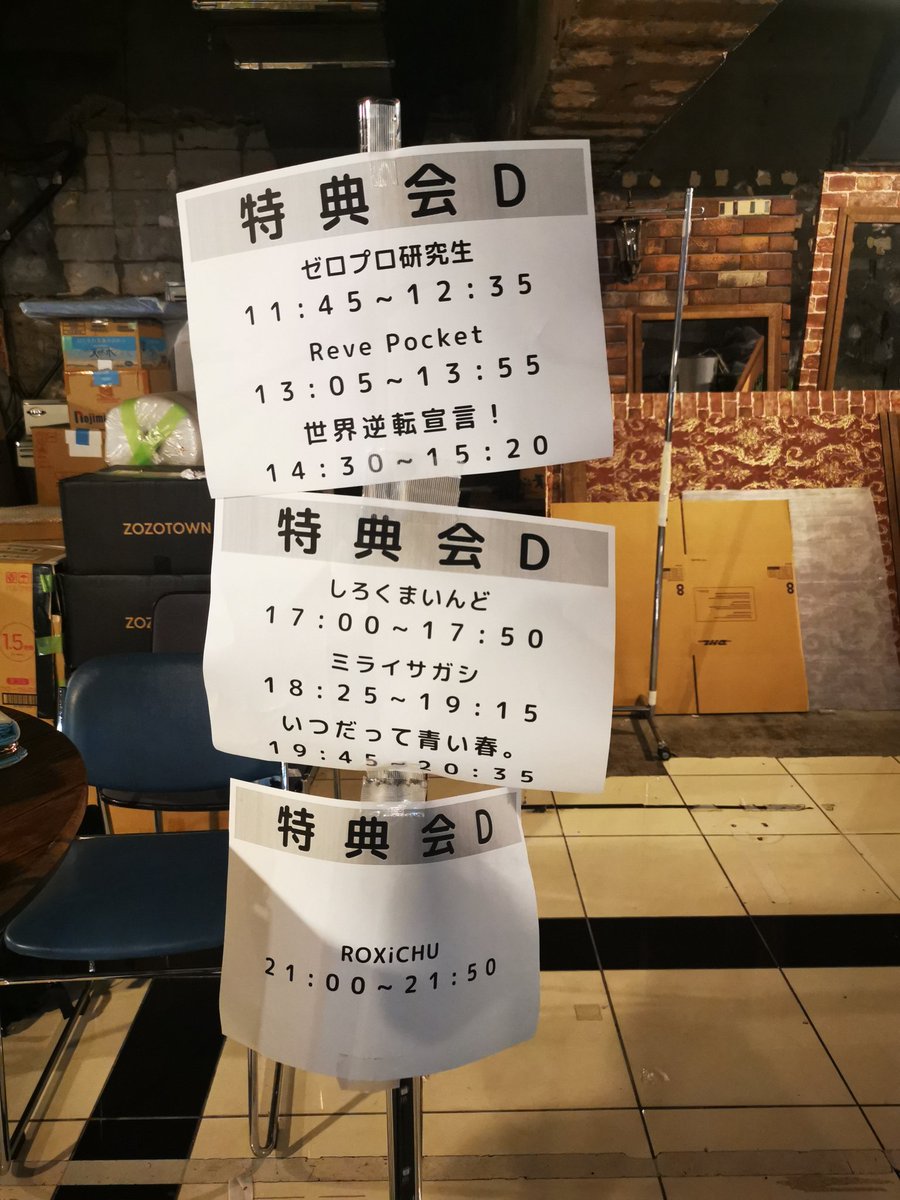 特典会D
ゼロプロ研究生
11:45~12:35
Reve Pocket
13:05~13:55
世界逆転宣言！
14:30~15:20
特典会D
しろくまいんど
17:00~17:50
ミライサガシ
18:25~19:15
いつだって青い春。
19:45~20:35
特典会D
ROXiCHU
21:00~21:50
Nojim
ZOZOTOWN
ZOZ
1.5
8
8